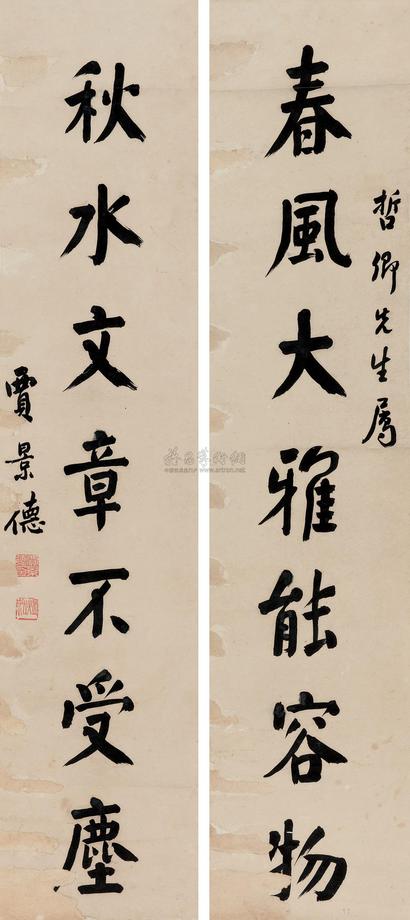 哲卿先生属
春風大雅能容物
秋水文章不受塵
賈景德
www.artron.net